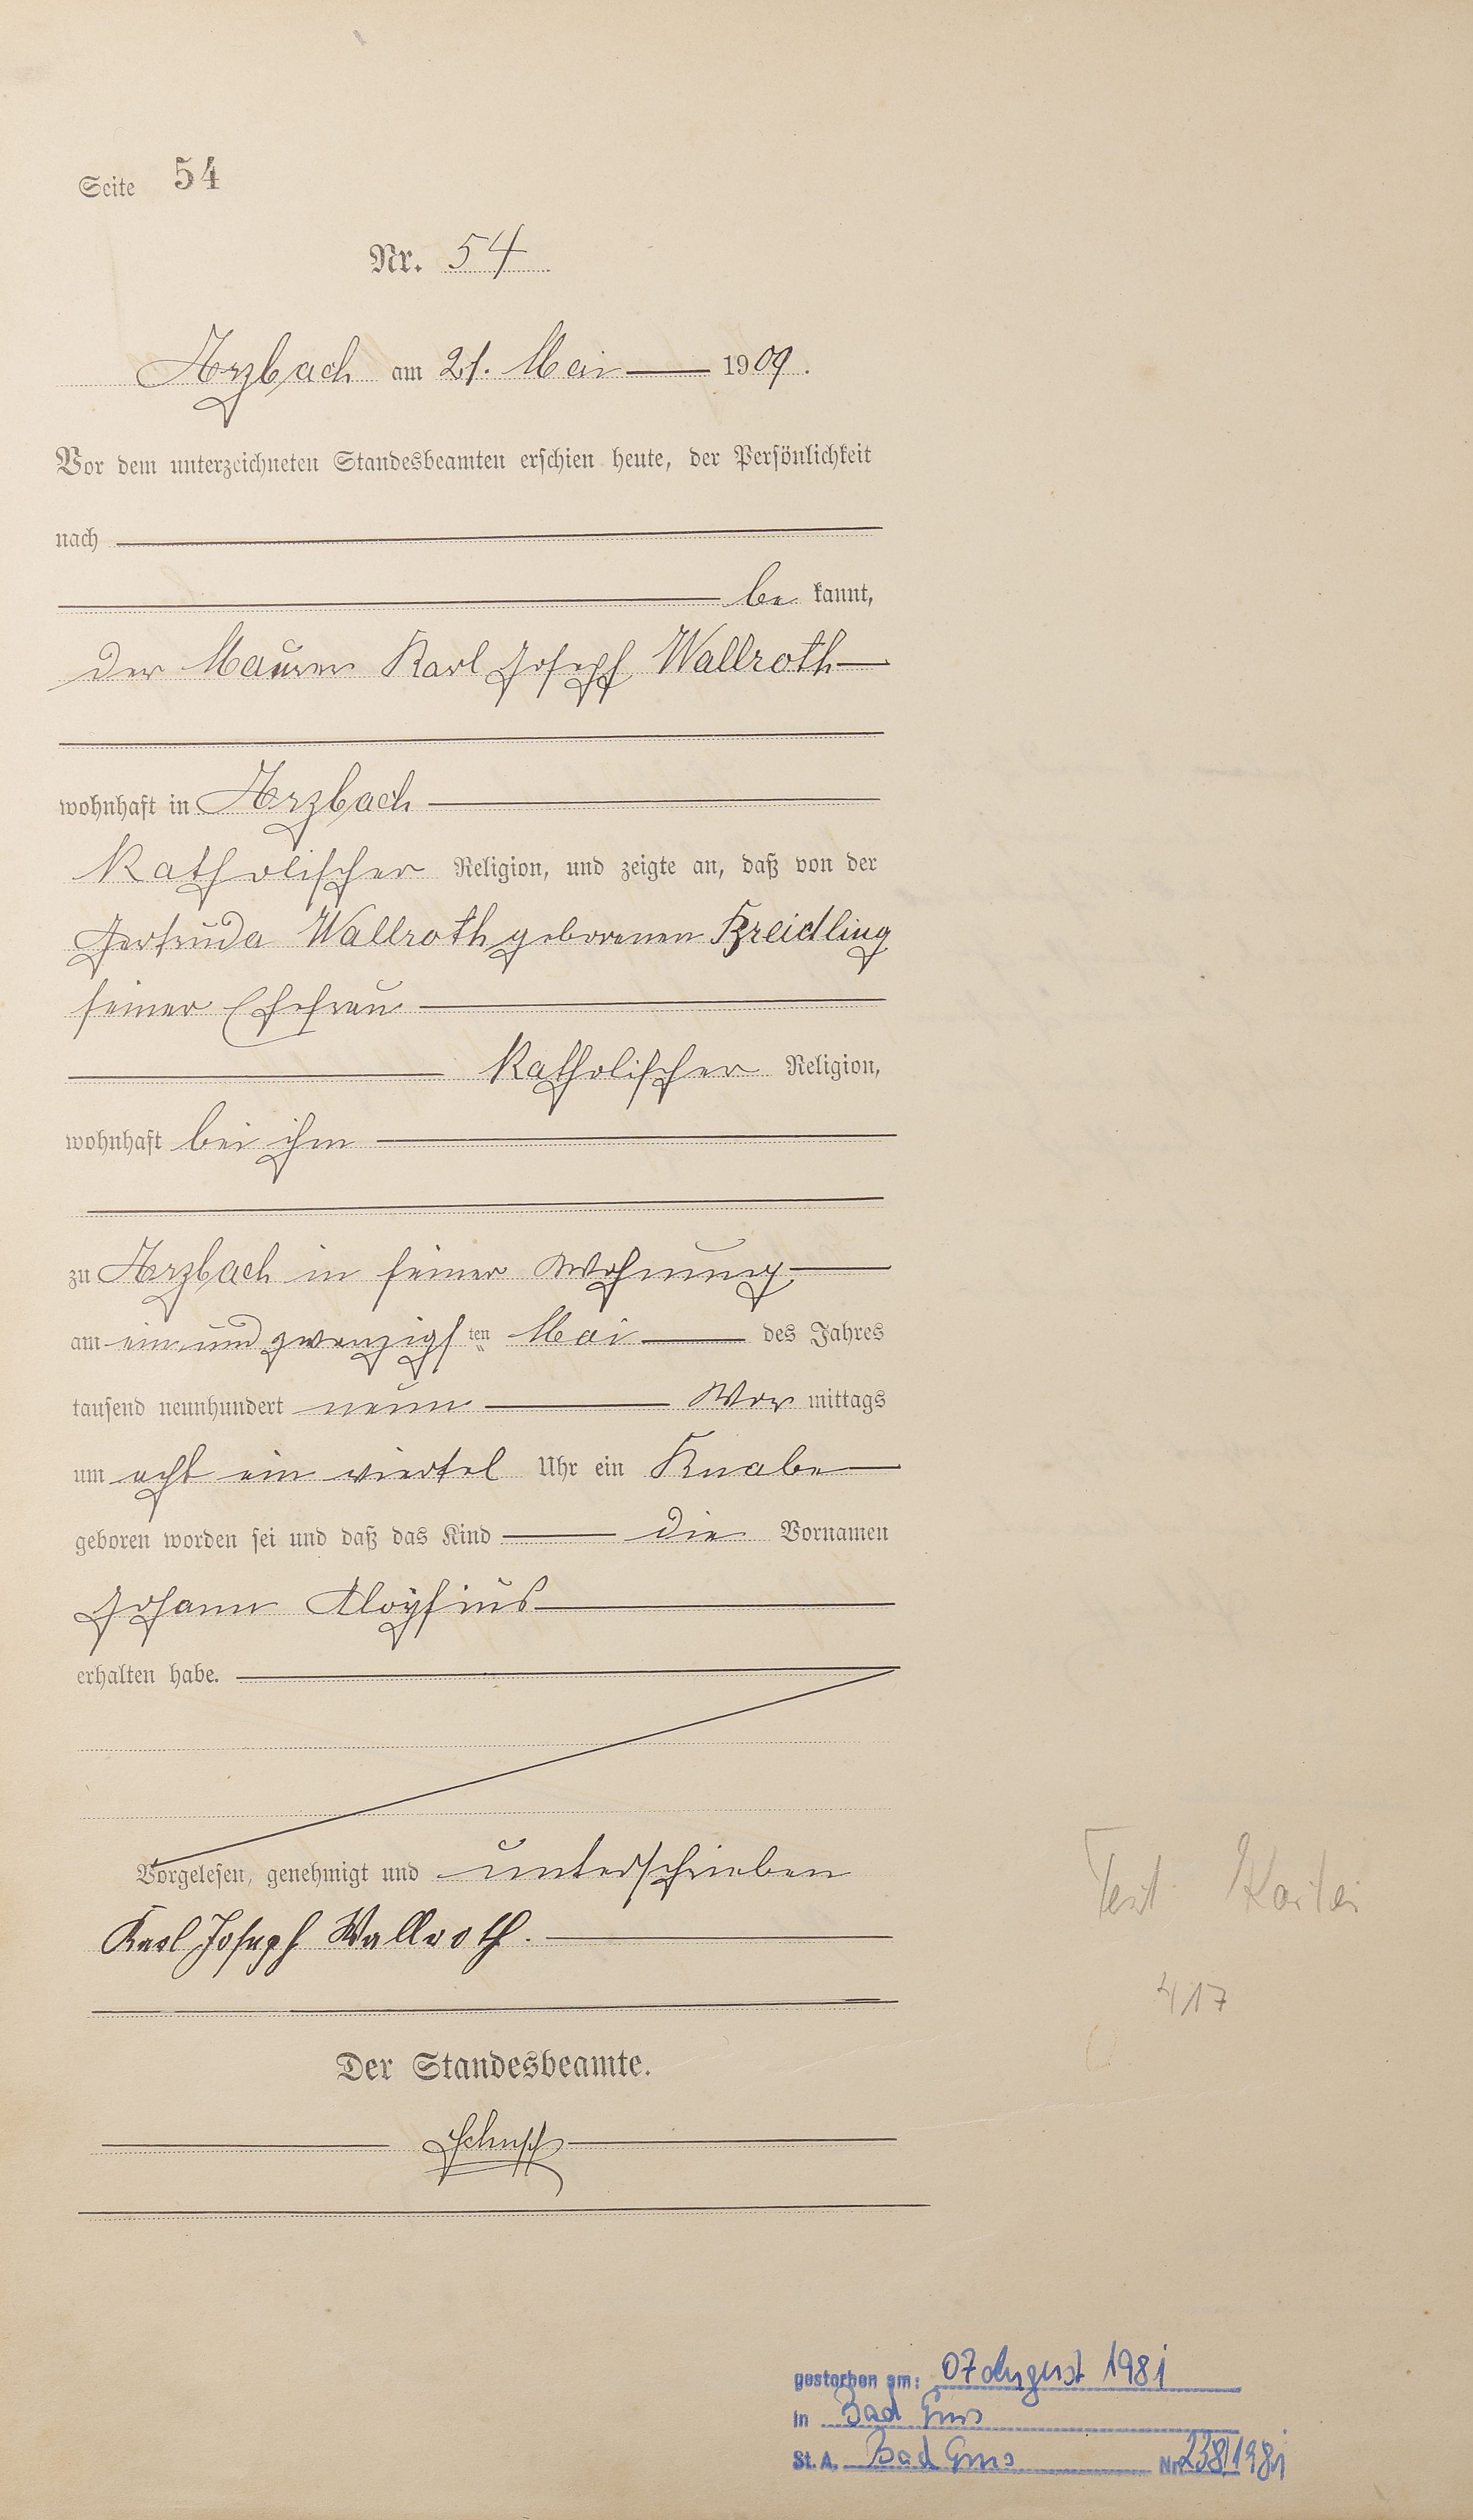 Seite 54
Nr. 54
Arzbach am 21. Mai 1909.
Vor dem unterzeichneten Standesbeamten erschien heute, der Persönlichkeit
nach
be kannt,
der Maurer Karl Joseph Wallroth
wohnhaft in Arzbach
Katholischer Religion, und zeigte an, daß von der
Gertruda Wallroth geborenen Breidling
seiner Ehefrau
Katholischer Religion,
wohnhaft bei ihm
zu Arzbach in seiner Wohnung
am ein und zwanzigsten Mai des Jahres
tausend neunhundert neun Vor mittags
um acht ein viertel Uhr ein Knabe
geboren worden sei und daß das Kind die Vornamen
Johann Aloÿsius
erhalten habe.
Vorgelesen, genehmigt und unterschrieben
Karl Joseph Wallroth.
Der Standesbeamte.
Test Kartei
417
gestorben am: 07 August 1981
in Bad Ems
St. A. Bad Ems Nr. 238/1981